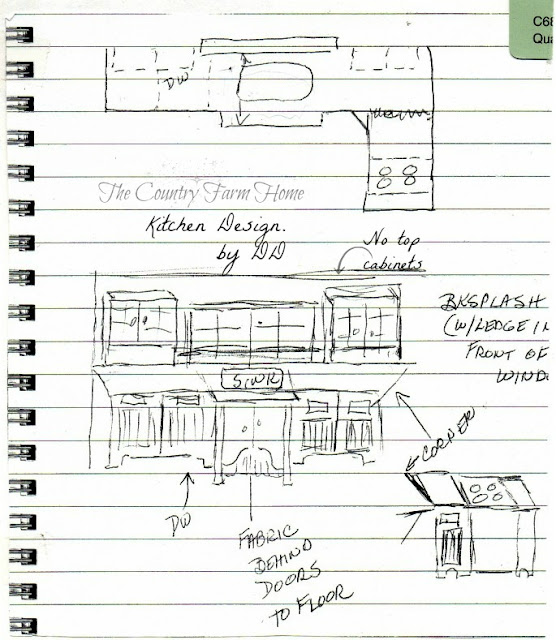 C68
Qua
DW
The Country Farm Home
Kitchen Design.
by DD
No top
cabinets
BKSPLASH
(W/LEDGE IN
FRONT OF
WIND
SINK
CORNER
DW
FABRIC
BEHIND
DOORS
TO FLOOR